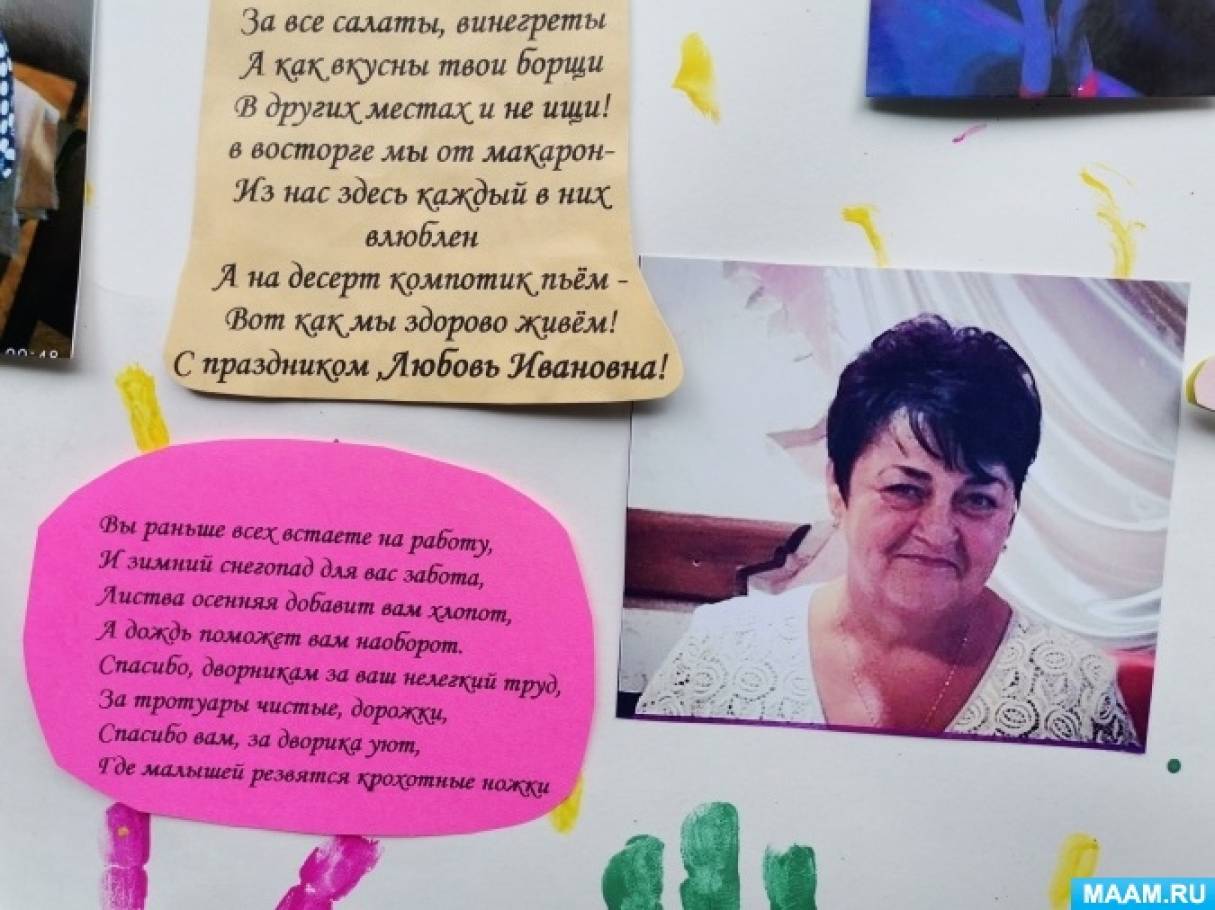 За все салаты, винегреты
А как вкусны твои борщи
В других местах и не ищи!
в восторге мы от макарон-
Из нас здесь каждый в них
влюблен
А на десерт компотик пьём -
Вот как мы здорово живём!
С праздником ,Любовь Ивановна!
Вы раньше всех встаете на работу,
И зимний снегопад для вас забота,
Листва осенняя добавит вам хлопот,
А дождь поможет вам наоборот.
Спасибо, дворникам за ваш нелегкий труд,
За тротуары чистые, дорожки,
Спасибо вам, за дворика уют,
Где малышей резвятся крохотные ножки
MAAM.RU